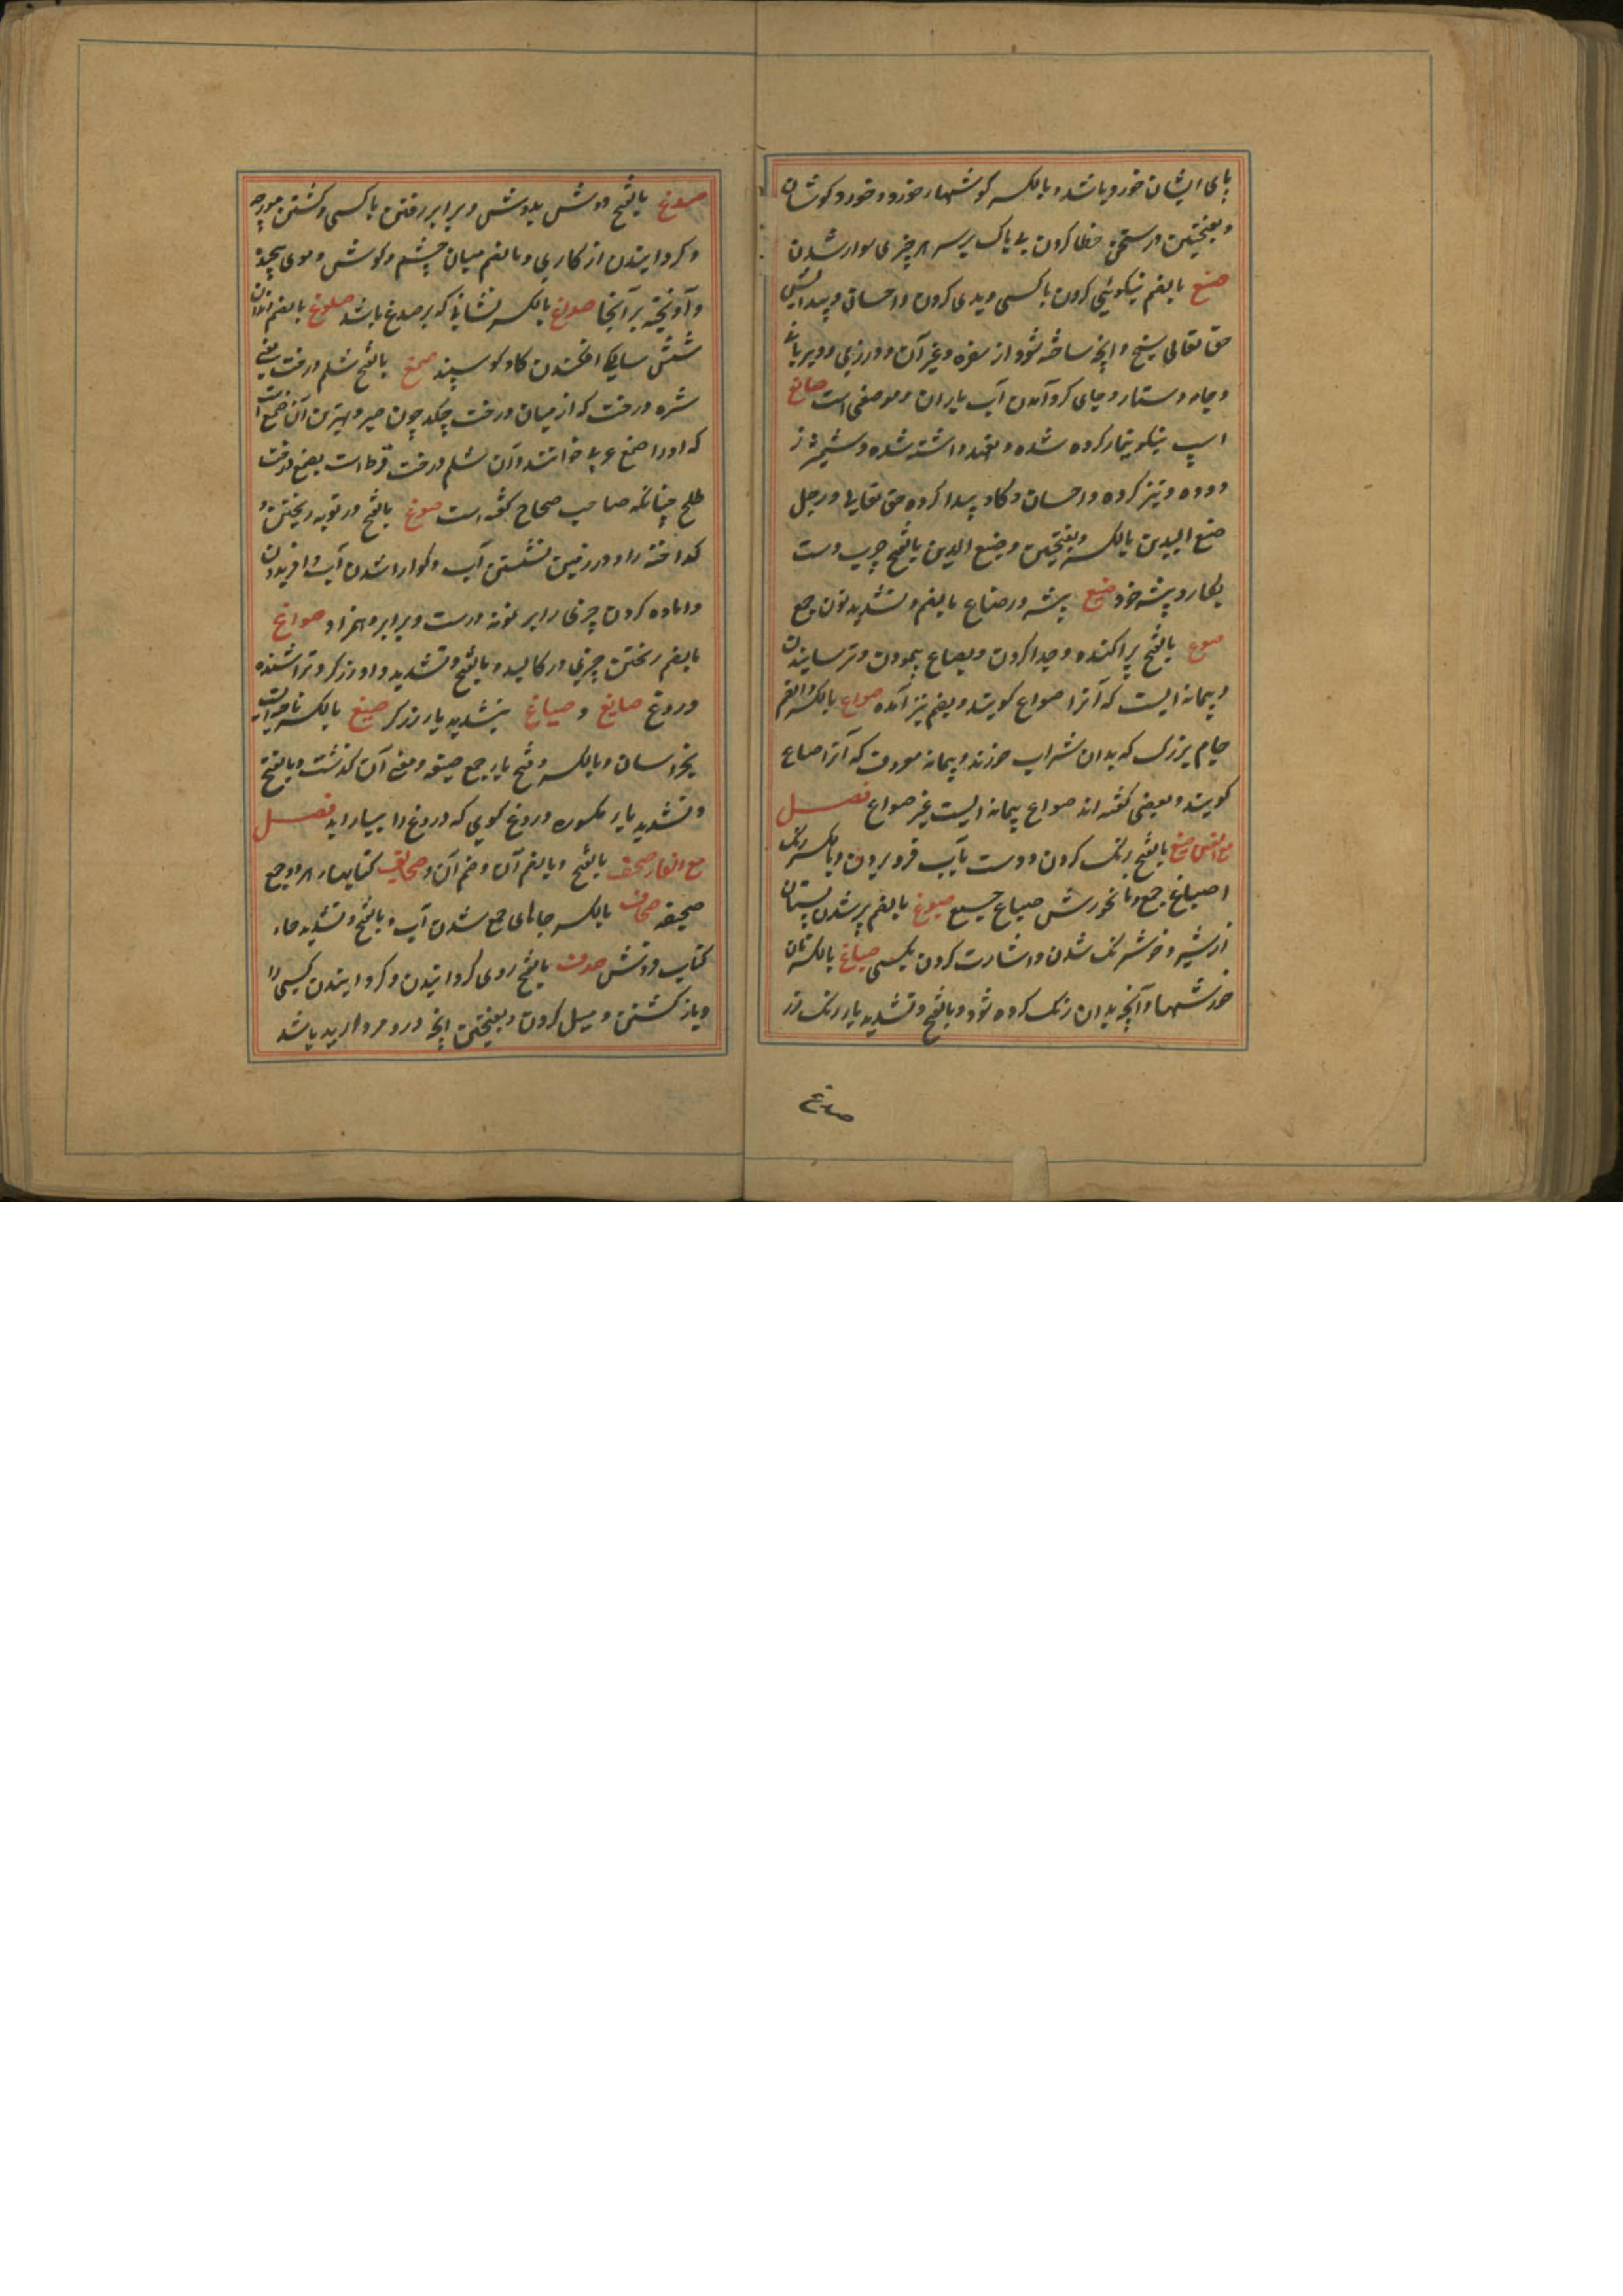 پای ایشان خورد باشد و بالکسر کوشهاء خورد و خورد کوشان
و بفتحتین در سختی خطا کردن بی باک بر سر هر چیزی سوار شدن
صنع بالضم نیکوئی کردن با کسی و بدی کردن و احسان و پیدایش
حق تعالی و انچه ساخته شود از سفره و غیر آن و درزی و
و جامه و دستار و جای کرد آمدن آب باران و موضعی است صانع
اسپ نیکو تیمار کرده شده و تعهد داشته شده و شمشیر ز
دوده و تیز کرده و احسان و کار پیدا کرده حق تعالی و رجل
صنع الیدین بالکسر و بفتحتین و صنیع الیدین بالفتح چرب دست
بکار و پیشه خود صنیع پیشه ور صناع بالضم و تشدید نون جمع
صوع بالفتح پراکنده و جدا کردن و بصاع پیمودن و ترسانیدن
و پیمانه ایست که آنرا صواع کویند و بضم نیز آمده صواع بالکسر و الضم
جام بزرک که بدان شراب خورند و پیمانه معروف که آنرا صاع
کویند و بعضی کفته اند صواع پیمانه ایست غیر صواع فصـــل
مع الغین صبغ بالفتح رنک کردن و دست بآب فرو بردن و بالکسر رنک
اصباغ جمع و نانخورش صباغ جمع صبوغ بالضم پر شدن پستان
از شیر و خوشرنک شدن و اشارت کردن بکسی صباغ بالکسر نان
خورشها و آنچه بدان رنک کرده شود و بالفتح و تشدید با رنک رز
صدغ
صدغ بالفتح دوش بدوش و برابر رفتن با کسی و کشتن مورچه
و کردانیدن از کاری و بالضم میان چشم و کوش و موی پیچیده
و آویخته بر آنجا صداغ بالکسر نشانی که بر صدغ باشد صلوغ بالضم دندان
شش سالکی افکندن کاو و کوسپند صمغ بالفتح شلم درخت یعنی
شره درخت که از میان درخت چکد چون صبر و بهترین آن صمغ است
که او را صمغ عربی خوانند و آن شلم درخت قرظ است یعنی درخت
طلح چنانکه صاحب صحاح کفته است صوغ بالفتح در بوته ریختن و
کداخته را و در زمین نشستن آب و کوارا شدن آب و آفریدن
و اماده کردن چیزی را بر نمونه درست و برابر و همزاد صواغ
بالضم ریختن چیزی در کالبد و بالفتح و تشدید واو زرکر و تراشنده
دروغ صایغ و صیاغ بتشدید یا زرکر صیغ بالکسر ناحیه ایست
بخراسان و بالکسر و فتح یا جمع صیغه و معنی آن کذشت و بالفتح
و تشدید یاء مکسوره دروغ کوی که دروغ را بیاراید فصـــل
مع الفاء صحف بالفتح و بالضم آن و ضم آن و صحایف کتابها هر دو جمع
صحیفه صحاف بالکسر جاهای جمع شدن آب و بالفتح و تشدید حاء
کتاب فروش صدف بالفتح روی کردانیدن و کردانیدن کسی را
و باز کشتن و میل کردن و بفتحتین انچه درو مروارید باشد